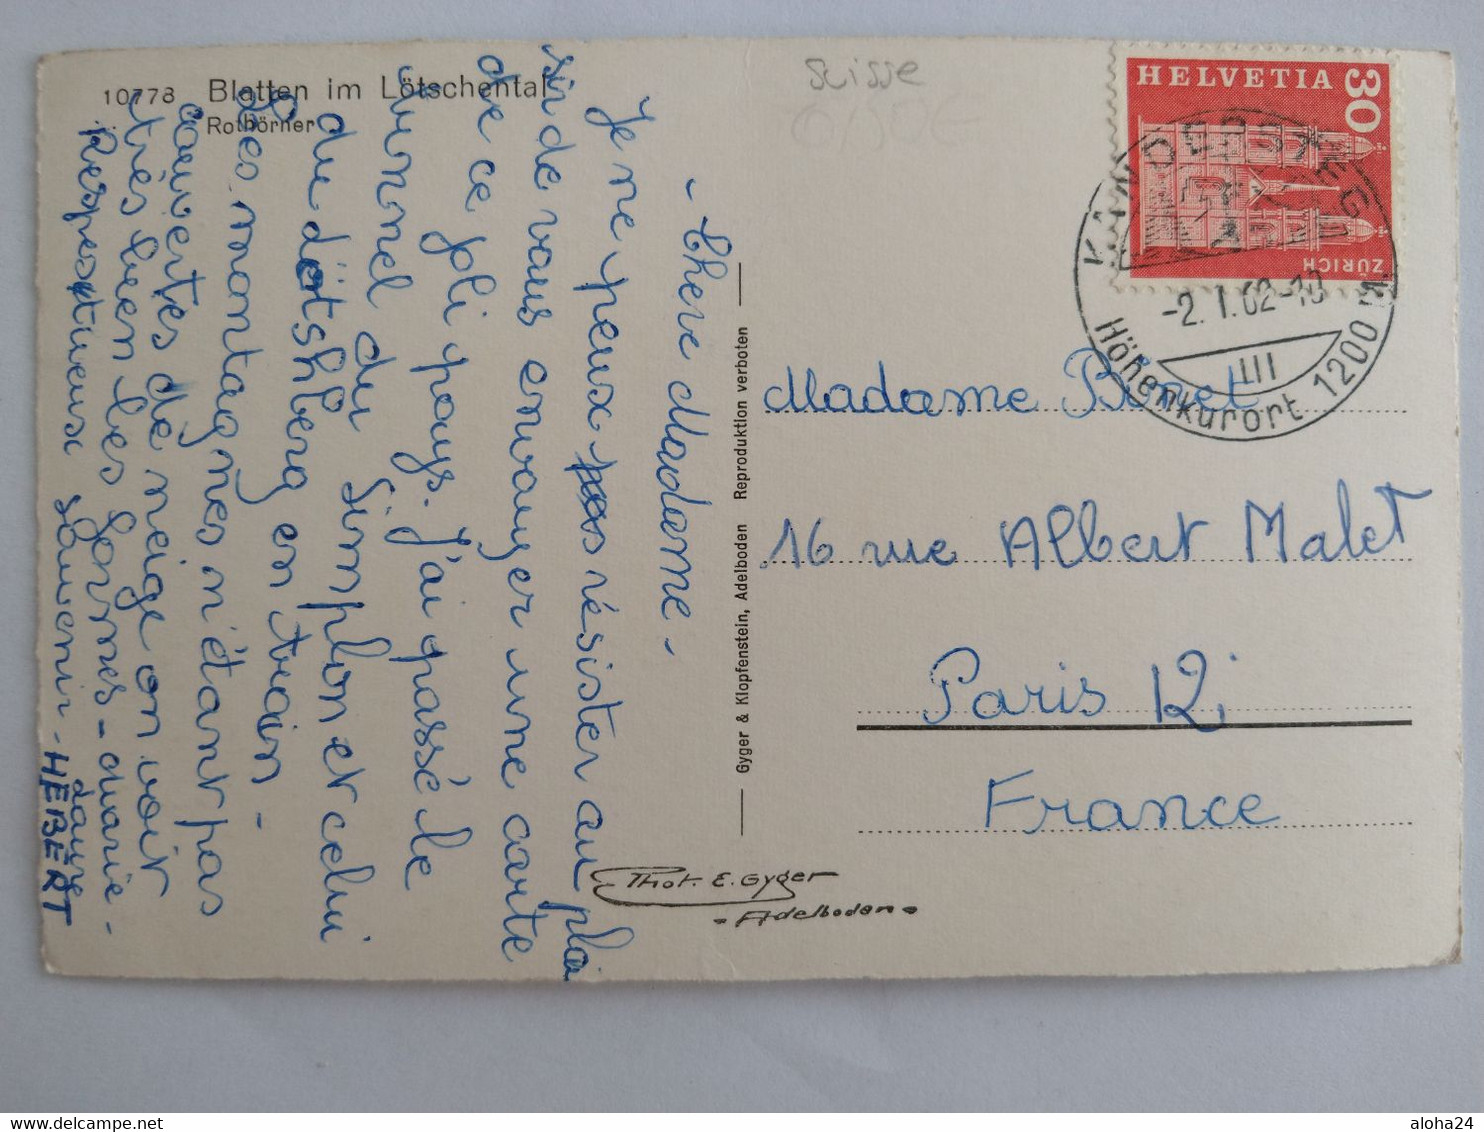 10778 Blatten im Lötschental
Rothörner
suisse
HELVETIA
30
ZÜRICH
KANDERSTEG
-2.1.62-10
III
Höhenkurort 1200 M.
- Chere Madame -
Je ne peux pas résister au plai
sir de vous envoyer une carte
de ce joli pays. J'ai passé le
tunnel du Simplon et celui
du Lötshberg en train -
Les montagnes n'étant pas
couvertes de neige on voit
très bien les formes -
Respectueux souvenir - Marie-
Louise
HEBERT
Gyger & Klopfenstein, Adelboden Reproduktion verboten
Phot. E. Gyger
- Adelboden -
Madame Binet
16 rue Albert Malet
Paris 12i
France
aloha24